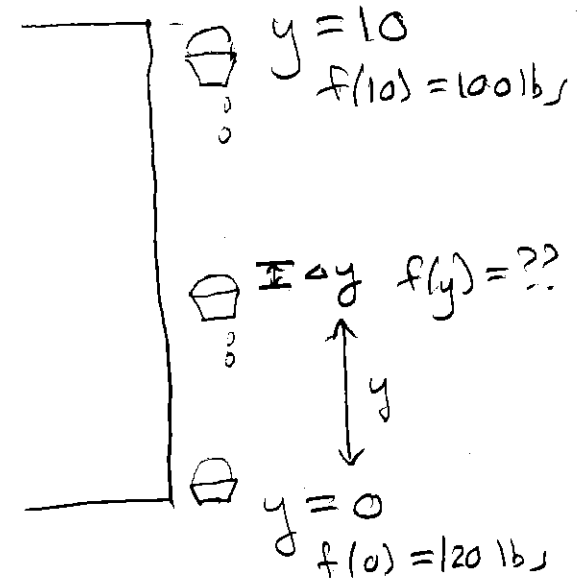 y = 10
f(10) = 100 lbs
Δy f(y) = ??
y
y = 0
f(0) = 120 lbs